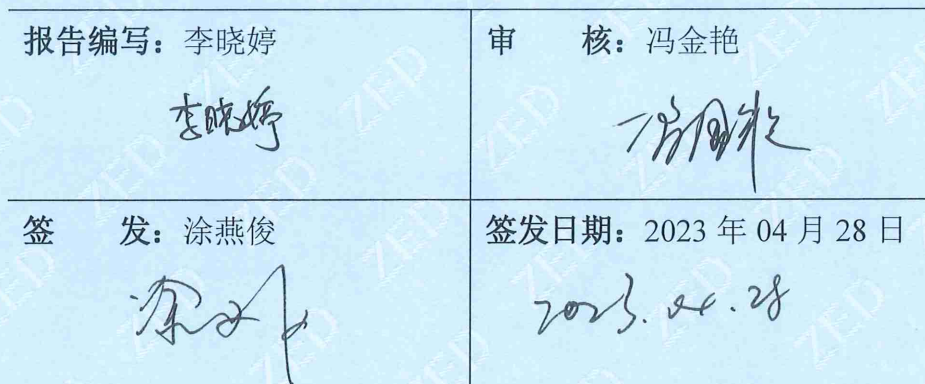 报告编写：李晓婷
审 核：冯金艳
李晓婷
签 发：涂燕俊
签发日期：2023 年 04 月 28 日
2023.04.28
ZED